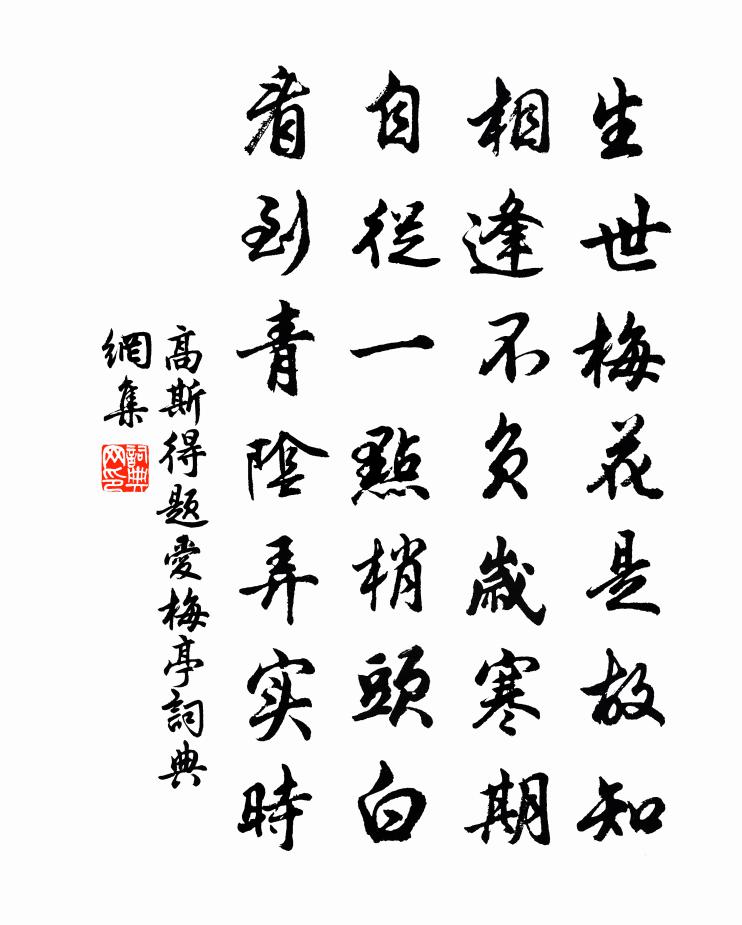 生世梅花是故知
相逢不負歲寒期
自從一點梢頭白
看到青陰弄实時
高斯得題愛梅亭詞典
網集
詞典
网印